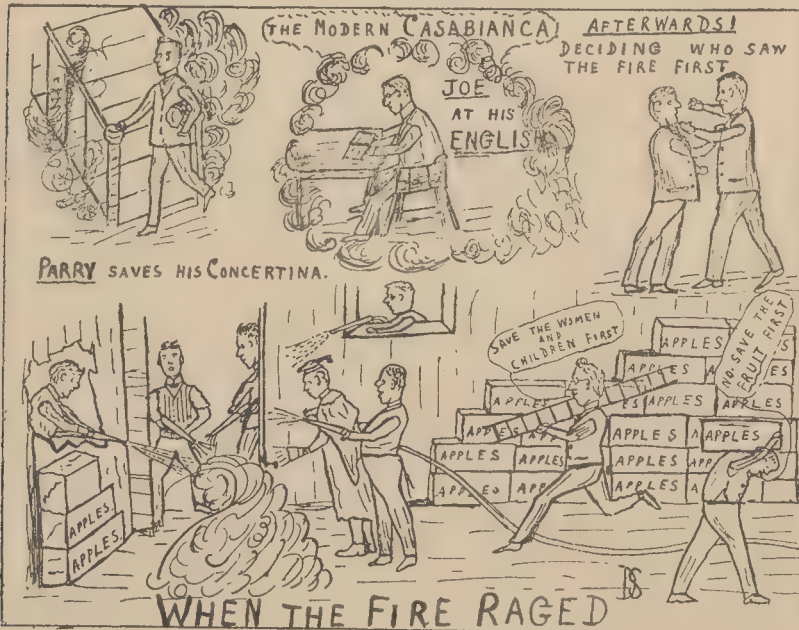 THE MODERN CASABIANCA
JOE
AT HIS
ENGLISH
AFTERWARDS!
DECIDING WHO SAW
THE FIRE FIRST
PARRY SAVES HIS CONCERTINA.
SAVE THE WOMEN
AND
CHILDREN FIRST
NO-SAVE THE
FRUIT FIRST
APPLES
APPLES
APPLES
APPLES
APPLES
APPLES
APPLES
APPLES
APPLES
APPLES
APPLES
APPLES
APPLES
APPLES.
APPLES.
WHEN THE FIRE RAGED